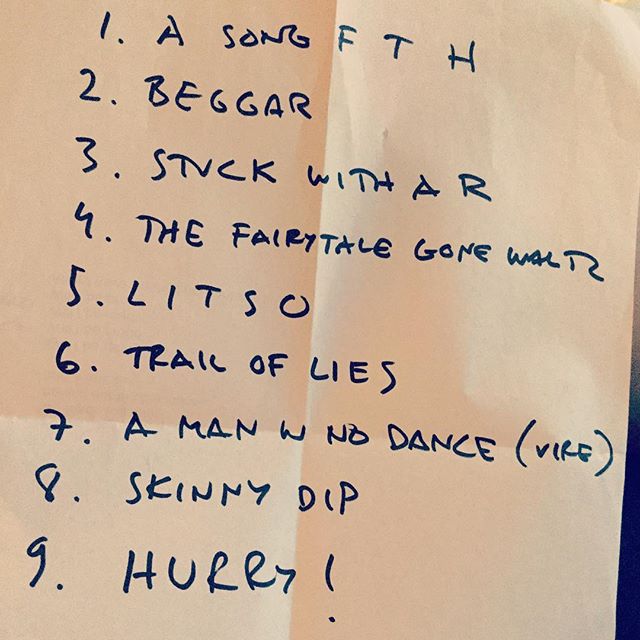 1. A SONG F T H
2. BEGGAR
3. STUCK WITH A R
4. THE FAIRYTALE GONE WALTZ
5. L I T S O
6. TRAIL OF LIES
7. A MAN W NO DANCE (VIRE)
8. SKINNY DIP
9. HURRY!